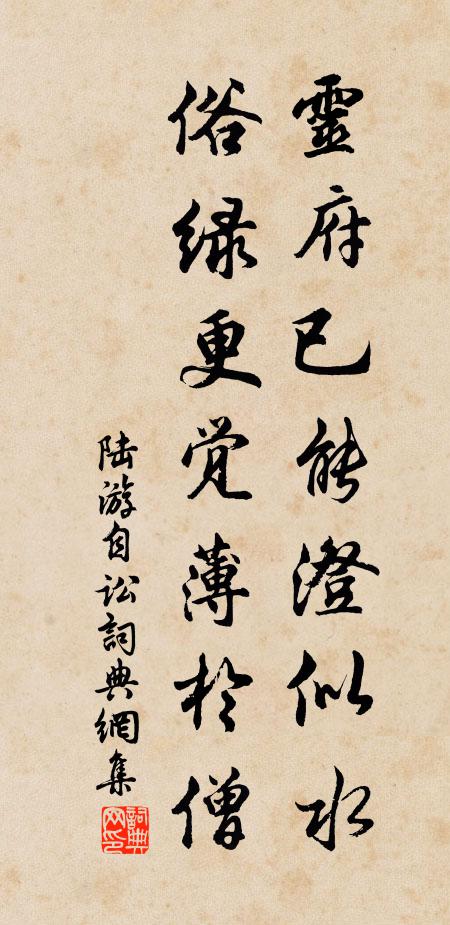 靈府已能澄似水
俗緑更觉薄於僧
陆游自訟詞典網集
詞典網印